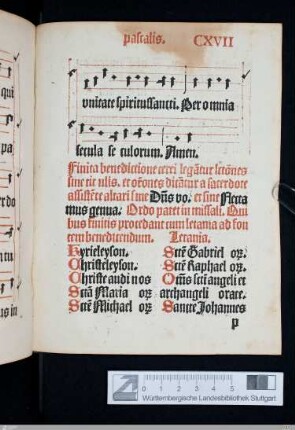 qui
pa
rdo
us in
pascalis. CXVII
vnitate spiritussancti. Per omnia
secula se culorum. Amen.
Finita benedictione cerei legātur lectōnes
sine titulis. et oīones dicātur a sacerdote
assistēte altari sine Dn̄s vo. et sine Flecta
mus genua. Ordo patet in missali. Qui
bus finitis procedant cum letania ad fon
tem benedicendum. Letania.
Kyrieleyson.
Christeleyson.
Christe audi nos
Sctā Maria oꝛ
Sctē Michael oꝛ
Sctē Gabriel oꝛ.
Sctē Raphael oꝛ.
Om̄s scti angeli et
archangeli orate.
Sancte Johannes
p
0 1 2 3 4 5
Württembergische Landesbibliothek Stuttgart